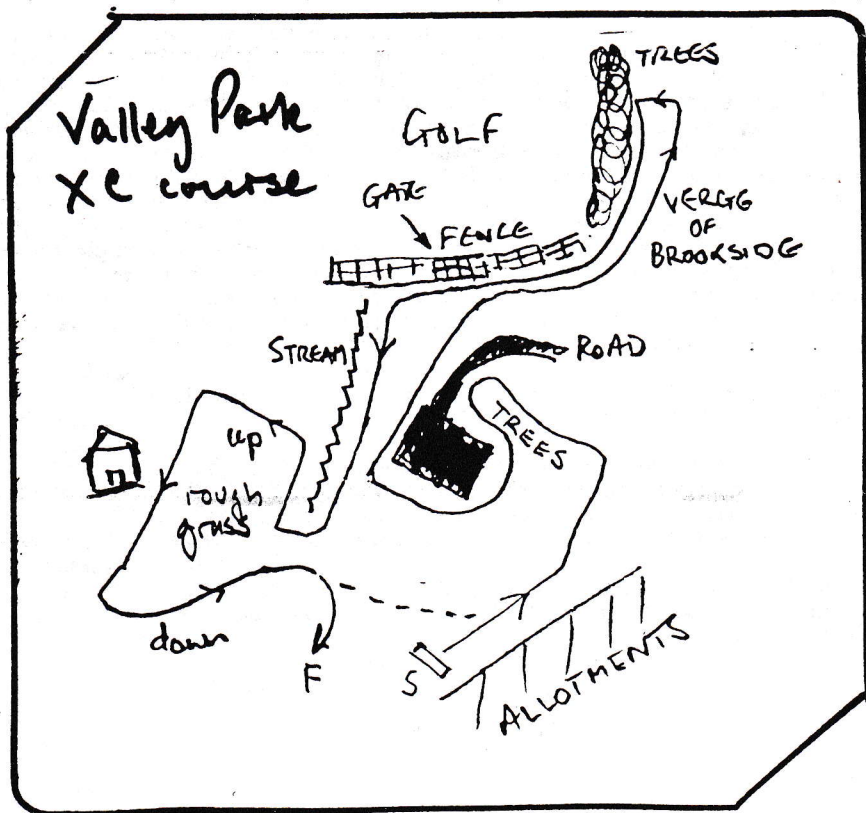 Valley Park
XC course
TREES
GOLF
GATE
FENCE
VERGE
OF
BROOKSIDE
STREAM
ROAD
TREES
up
rough
grass
down
F
S
ALLOTMENTS